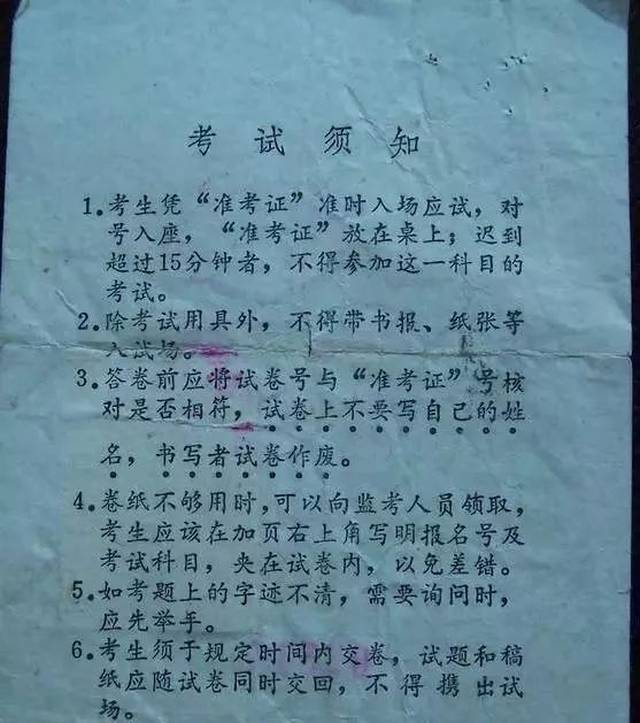 考试须知
1。考生凭“准考证”准时入场应试，对
号入座，“准考证”放在桌上；迟到
超过15分钟者，不得参加这一科目的
考试。
2。除考试用具外，不得带书报、纸张等
入试场。
3。答卷前应将试卷号与“准考证”号核
对是否相符，试卷上不要写自己的姓
名，书写者试卷作废。
4。卷纸不够用时，可以向监考人员领取，
考生应该在加页右上角写明报名号及
考试科目，夹在试卷内，以免差错。
5。如考题上的字迹不清，需要询问时，
应先举手。
6。考生须于规定时间内交卷，试题和稿
纸应随试卷同时交回，不得携出试
场。